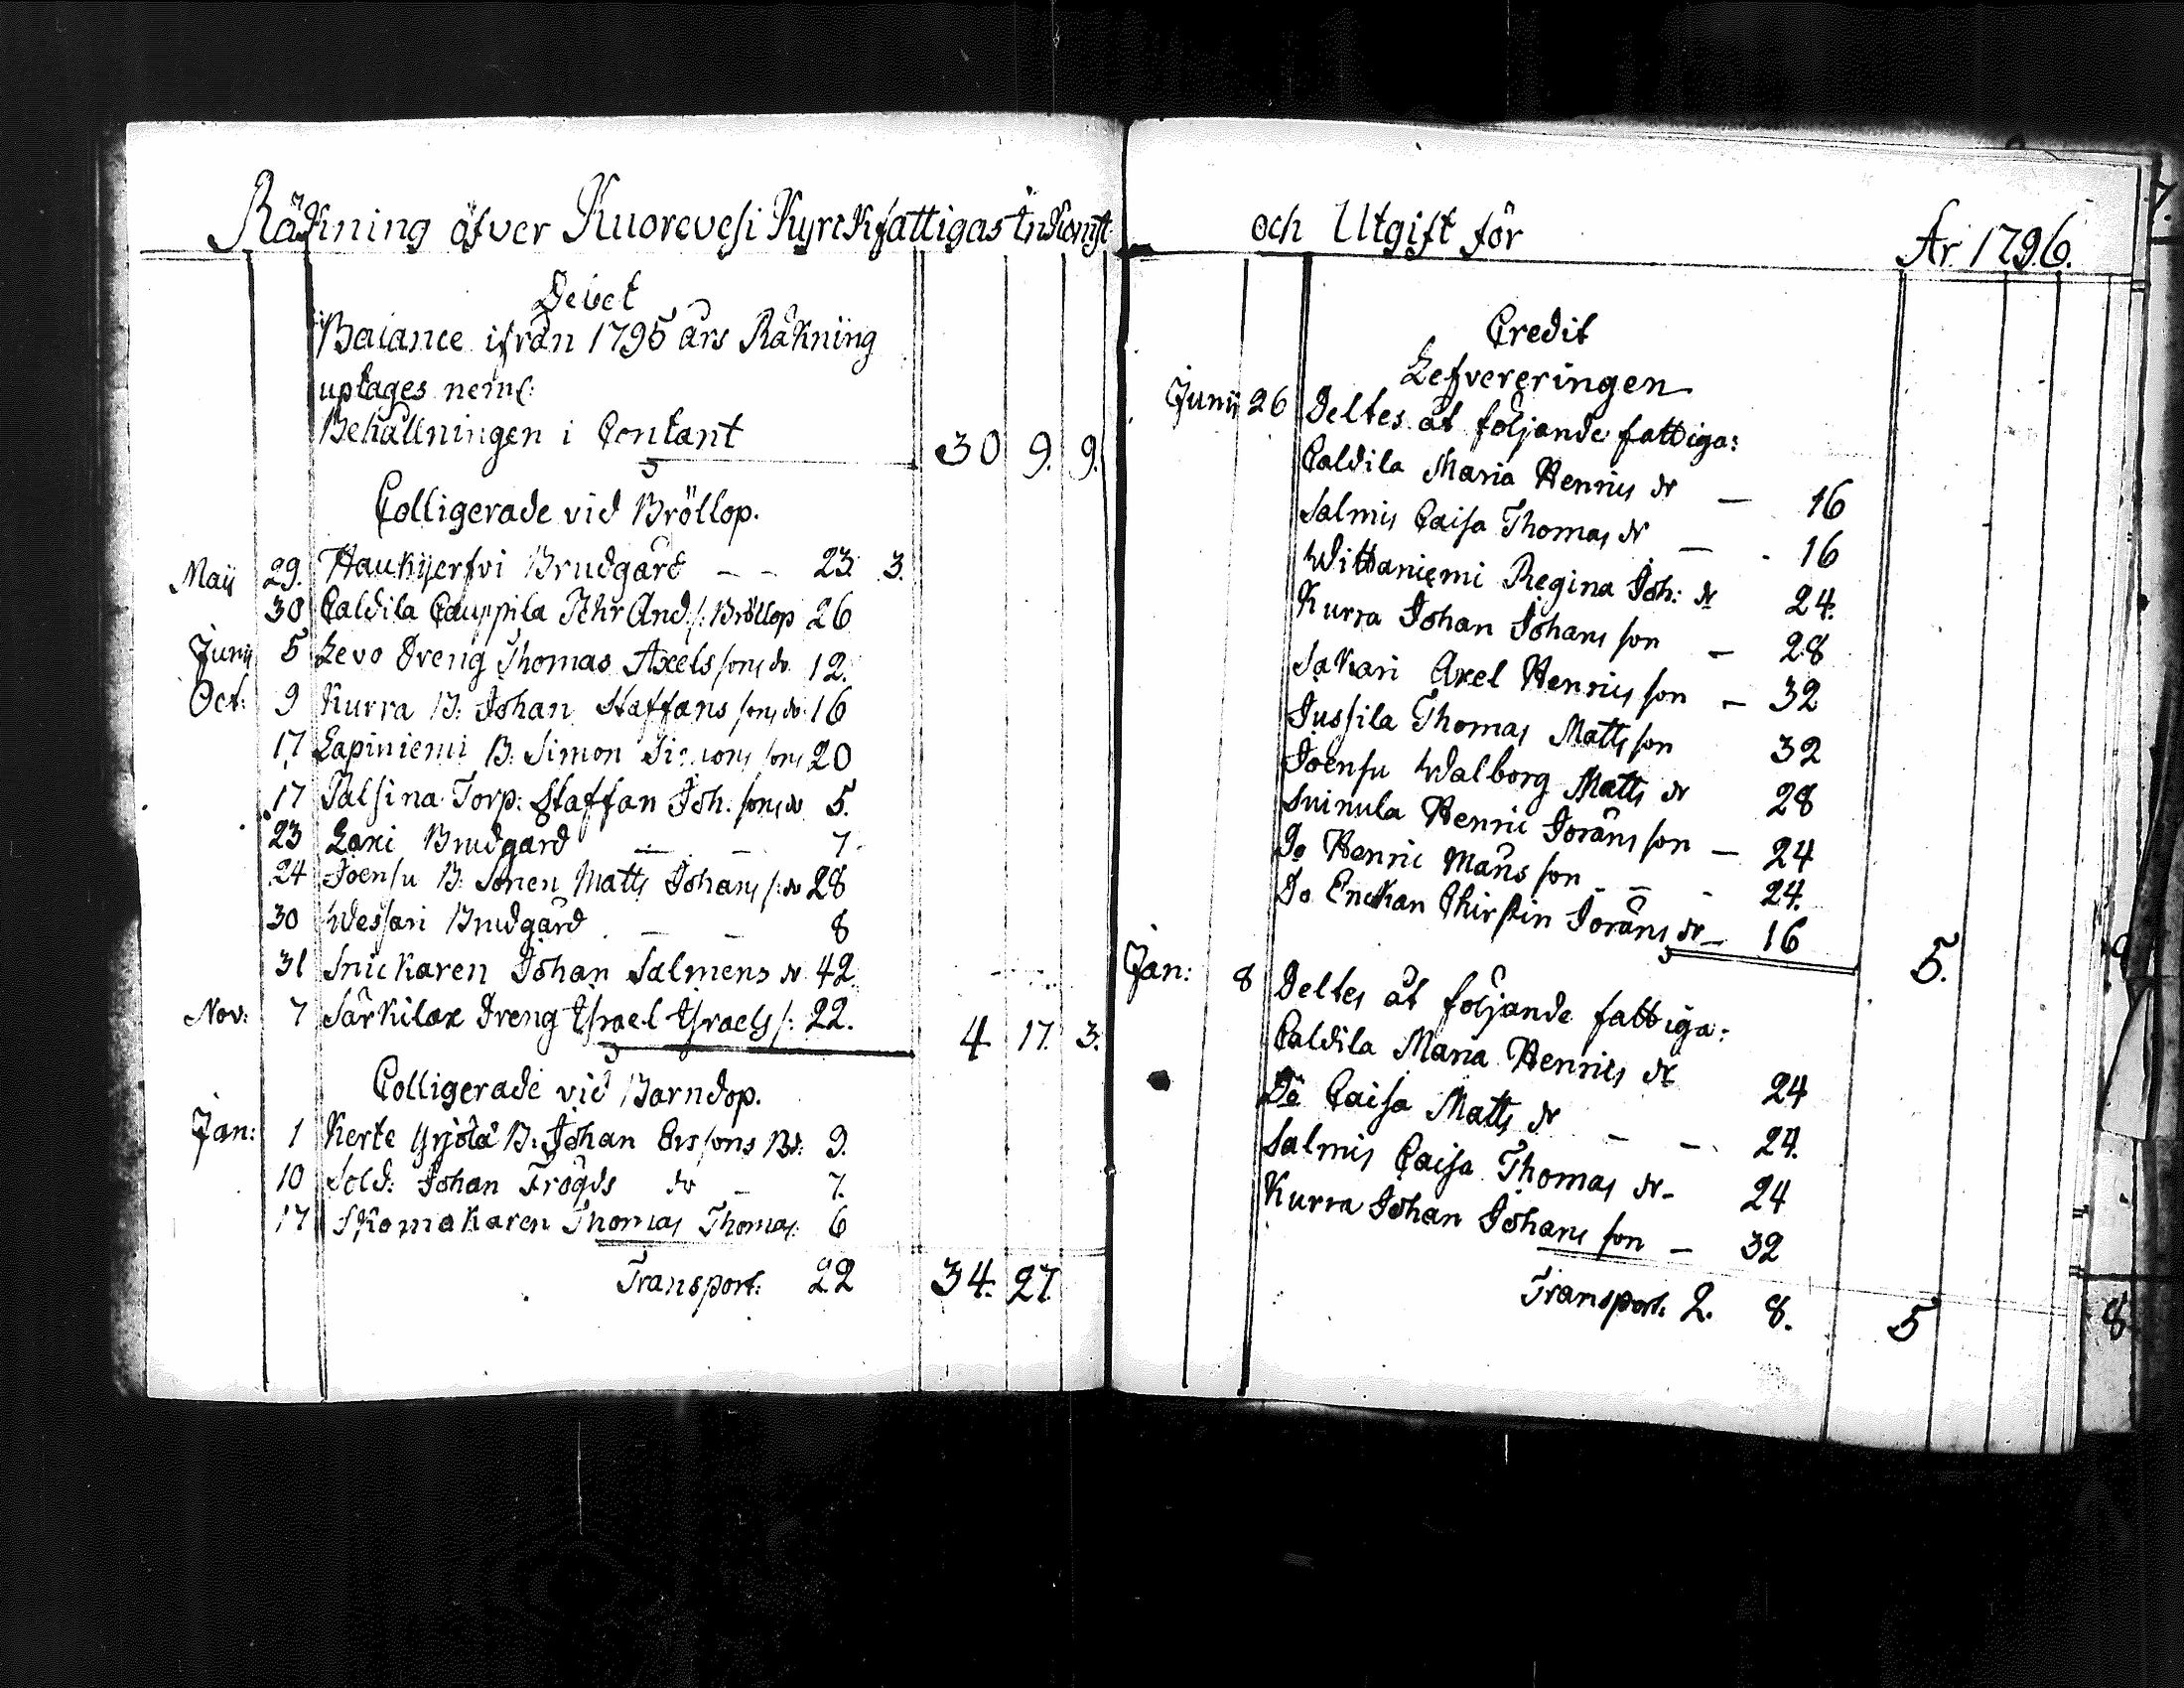 Räkning öfver Kuorevesi Kyrckfattigas Inkomst
Debet
Balance ifrån 1795 års Räkning
uptages neml:
Behållningen i Contant 30 9. 9.
Colligerade vid Bröllop.
Maij 29. Haukijerfvi Brudgård — — 23. 3.
30 Caldila Cauppila Tehr And: s: Bröllop 26
Junij 5 Levo Dreng Thomas Axelssons do 12.
Oct: 9 Kurra B: Johan Staffans sons do 16
17 Lapiniemi B: Simon Simons sons 20
17 Palsina Torp: Staffan Joh: sons do 5.
23 Laxi Brudgård — — 7.
24 Joensu B: Sonen Matts Johans s: do 28
30 Wessari Brudgård — — 8
31 Snickaren Johan Salmens do 42
Nov: 7 Särkilax Dreng Israel Israels s: 22. 4 17. 3.
Colligerade vid Barndop.
Jan: 1 Kerte Yrjölä B: Johan Erssons Bd: 9.
10 Sold: Johan Frögds do — 7.
17 Skomakaren Thomas Thomas: 6
Transport: 22 34. 27.
och Utgift för År 1796.
Credit
Lefvereringen
Junij 26 Deltes åt följande fattiga:
Caldila Maria Henrics dr — 16
Salmis Caisa Thomas dr — 16
Wittaniemi Regina Joh: dr 24.
Kurra Johan Johans son — 28
Sakari Axel Henrics son — 32
Jussila Thomas Matts son 32
Joensu Walborg Matts dr 28
Suinula Henric Jörans son — 24
Do Henric Måns son - — - 24.
Do Enckan Chirstin Jörans dr — 16 5.
Jan: 8 Deltes åt följande fattiga:
Caldila Maria Henrics dr 24
Do Caisa Matts dr — — 24.
Salmis Caisa Thomas dr - 24
Kurra Johan Johans son — 32
Transport: 2. 8. 5
8.